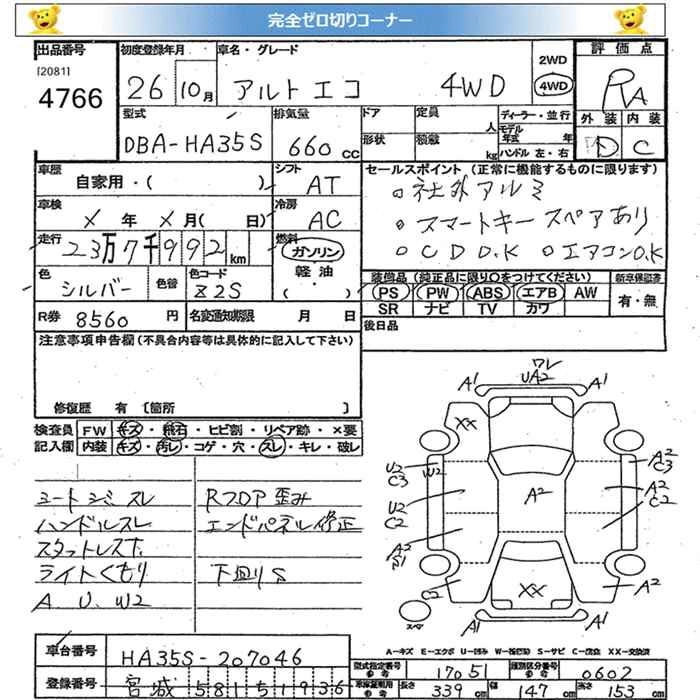 完全ゼロ切りコーナー
出品番号
[2081]
4766
初度登録年月
26 10月
車名・グレード
アルトエコ 4WD
2WD
4WD
評価点
RA
外装 内装
D C
型式
DBA-HA35S
排気量
660 cc
ドア
形状
定員
人
積載
kg
ディーラー・並行
モデル年式 年
ハンドル 左・右
車歴
自家用・( )
シフト
AT
車検
× 年 × 月( 日)
冷房
AC
走行
23万7千992 km
燃料
ガソリン
軽油
( )
色
シルバー
色替
色コード
Z2S
R券 8560 円
名変通知期限 月 日
セールスポイント (正常に機能するものに限ります)
○社外アルミ
○スマートキースペアあり
○CD O.K ○エアコンO.K
装備品 (純正品に限り○をつけてください)
PS PW ABS エアB AW
SR ナビ TV カワ
新車保証書
有・無
後日品
注意事項申告欄 (不具合内容等は具体的に記入して下さい)
修復歴 有 〔箇所
検査員記入欄
FW キズ・飛石・ヒビ割・リペア跡・×要
内装 キズ・汚レ・コゲ・穴・スレ・キレ・破レ
シートシミスレ
ハンドルスレ
スタットレス
ライトくもり
A U.W2
Rフロア歪み
エンドパネル修正
下廻りS
ワレ
UA2
A1 A1
XX
U2
C3
W2
U2
C2
A2
A2
C3
A2
C2
A2
S1
C2
A2
XX
A1 A1
スペア
A-キズ E-エクボ U-凹み W-板筋跡 S-サビ C-腐食 XX-交換済
車台番号
HA35S-207046
登録番号
宮城 581 51936
型式指定番号 参考
17051
類別区分番号 参考
0602
車庫証明用 参考
長さ 339 cm
幅 147 cm
高さ 153 cm